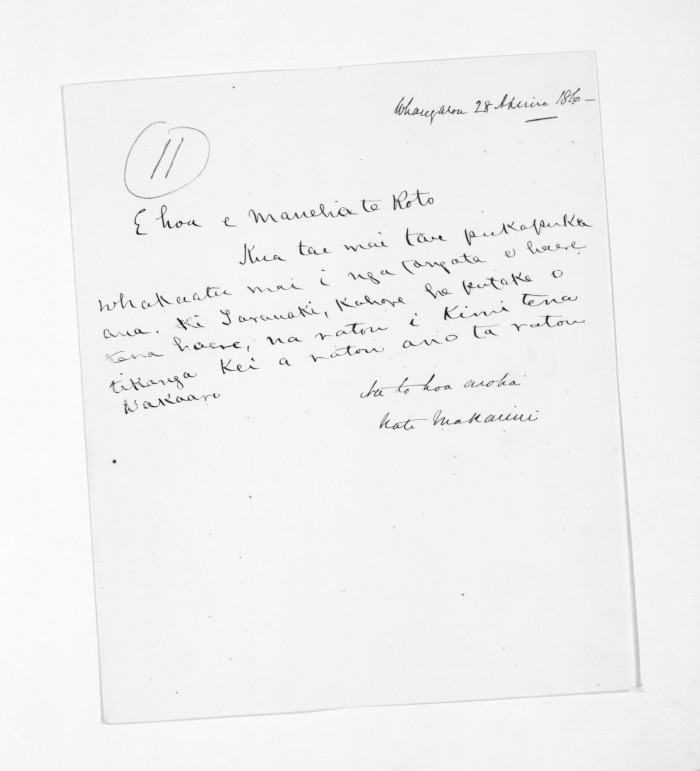 Whangaroa 28 Aperira 1860 —
11
E hoa e Manehia te Roto
Kua tae mai tau pukapuka
whakaatu mai i nga tangata e haere
ana. ki Taranaki, Kahore he putake o
tena haere, na ratou i Kimi tena
tikanga Kei a ratou ano ta ratou
Wakaaro
Na to hoa aroha
Makarini